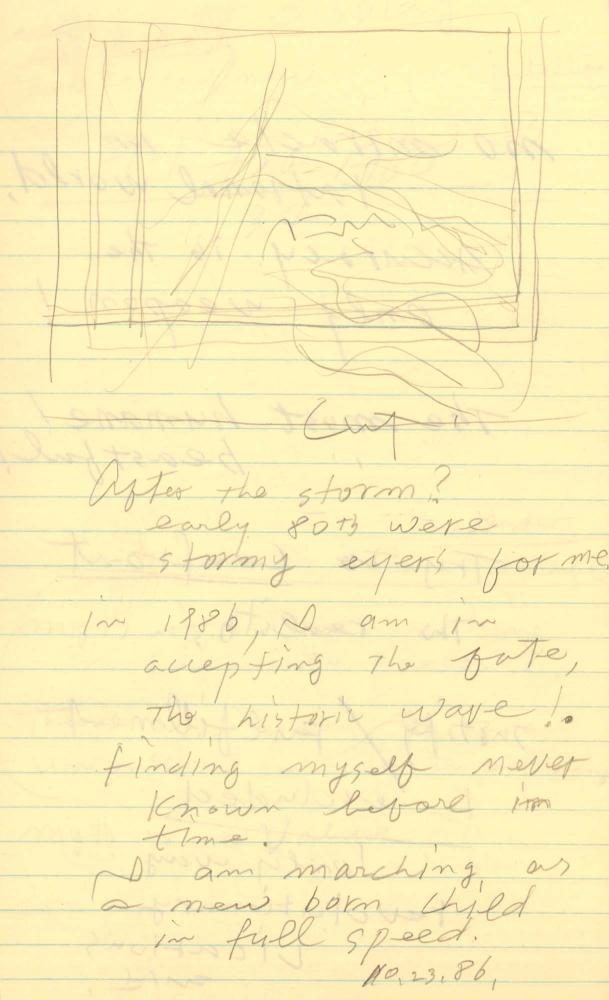 Cut
After the storm?
early 80th were
stormy eyers for me
in 1986, I am in
accepting the fate,
the historic wave!.
finding myself never
known before in
time.
I am marching as
a new born child
in full speed.
No. 23. 86,